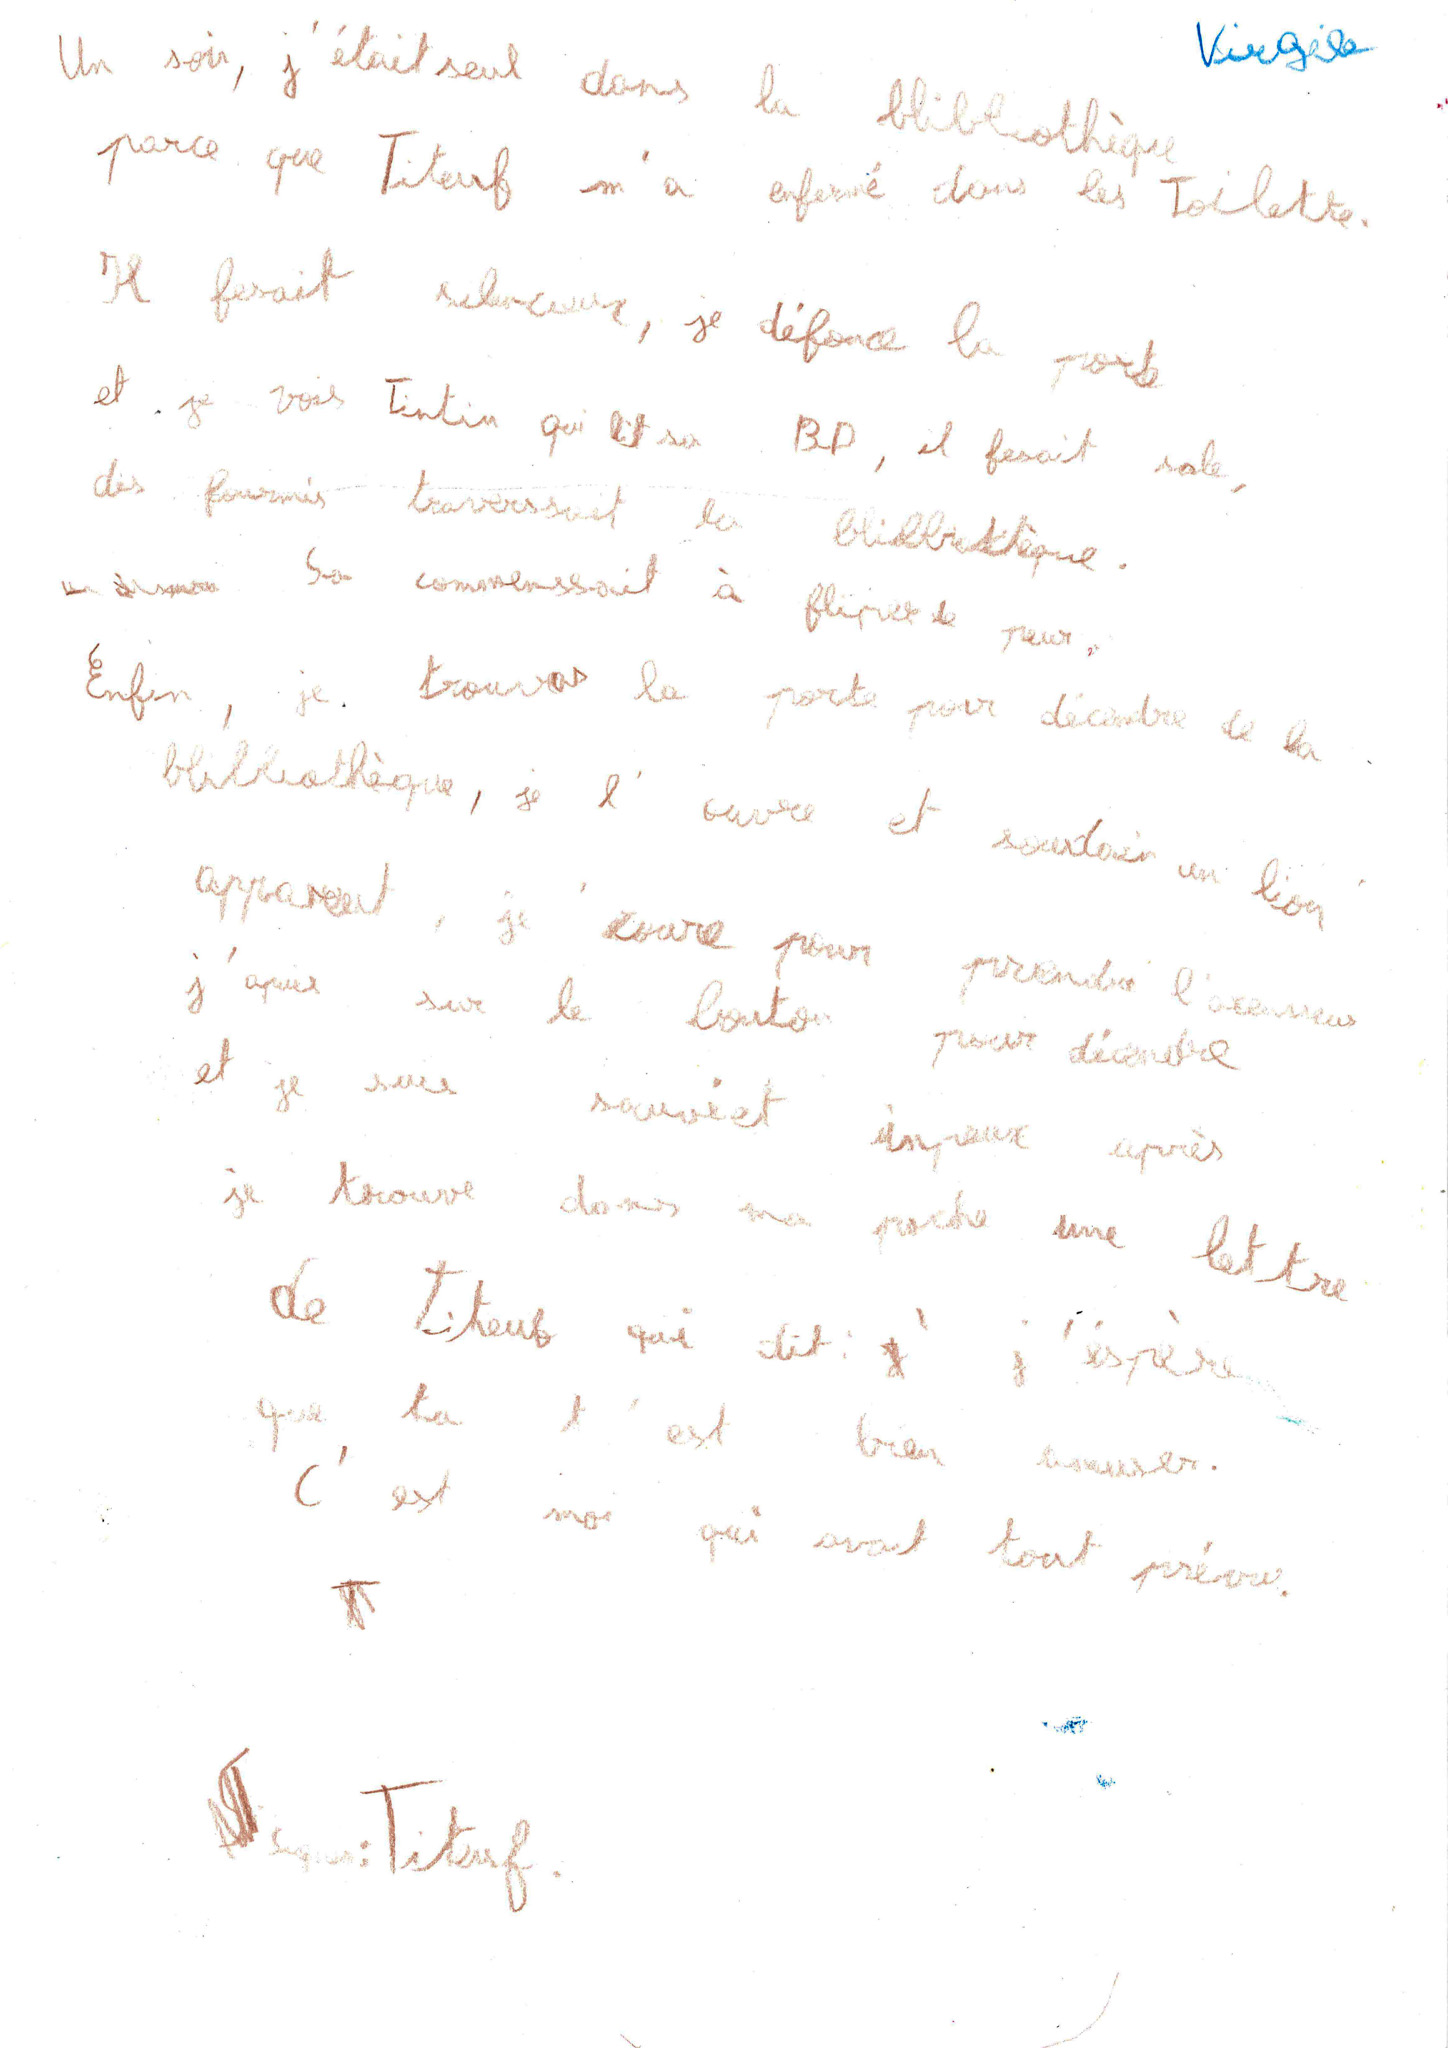 Virgile
Un soir, j'était seul dans la blibliothèque
parce que Titeuf m'a enfermé dans les Toilette.
Il fesait silencieux, je défonce la porte
et je vois Tintin qui lit sa BD, il fesait sale,
des fourmis traverssait la blibliothèque.
Sa commenssait à fliper de peur.
Enfin, je trouvas la porte pour décendre de la
blibliothèque, je l'ouvre et soudain un lion
apparait, je coure pour prendre l'acenseur
j'apuis sur le bouton pour décendre
et je suis sauvé et unpeux après
je trouve dans ma poche une lettre
de Titeuf qui dit: j'éspère
que ta t'est bien amuser.
C'est moi qui avait tout prévu.
signer: Titeuf.